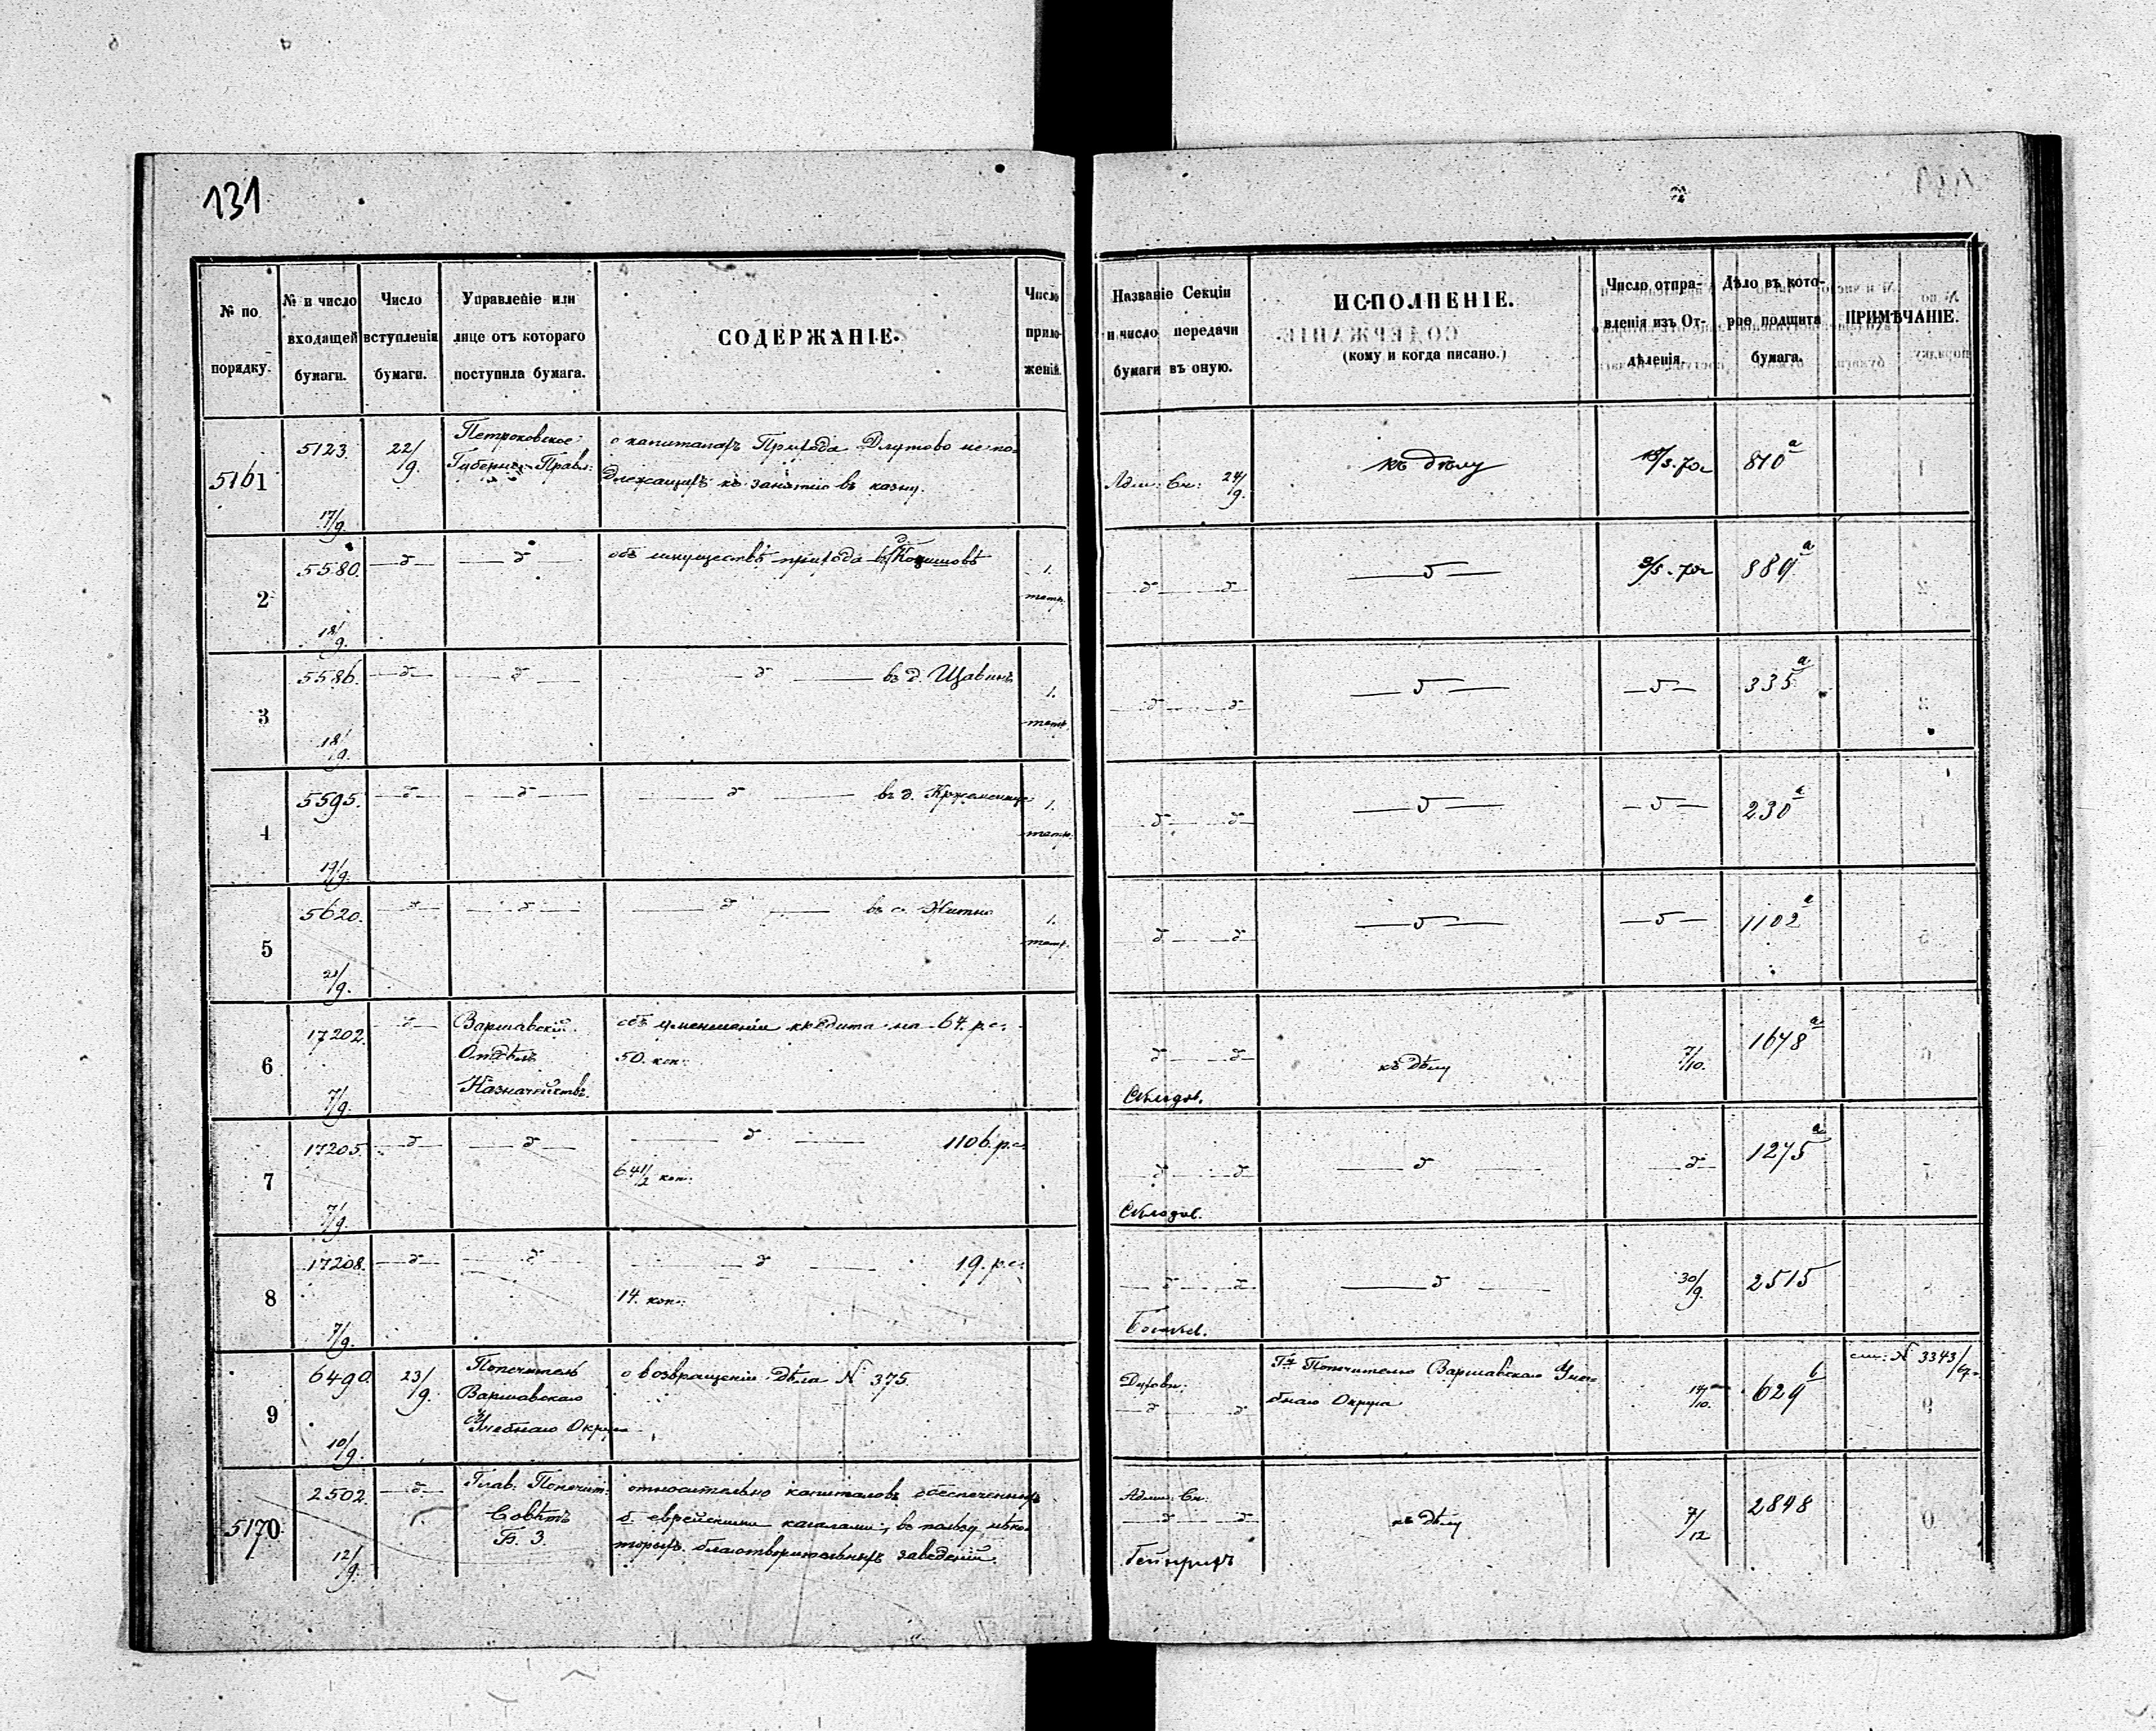 131
№ по порядку.
№ и число входящей бумаги.
Число вступленія бумаги.
Управленіе или лице отъ котораго поступила бумага.
СОДЕРЖАНІЕ.
Число приложеній.
Названіе Секціи и число передачи бумаги въ оную.
ИСПОЛНЕНІЕ.
(кому и когда писано.)
Число отправленія изъ Отдѣленія.
Дѣло въ которое подшита бумага.
ПРИМѢЧАНІЕ.
5161
5123.
17/9.
22/9.
Петроковское
Губернск. Правл:
о капиталахъ Прихода Длутово непо-
длежащихъ къ занятію въ казну.
Адм: Ск: 24/9.
къ дѣлу
810 а
2
5580.
18/9.
— д —
— д —
объ имуществѣ прихода въ д.
1.
тетр.
— д — д —
— д —
889 а
3
5586.
18/9.
— д —
— д —
— д — въ д. Щавинъ
1.
тетр.
— д — д —
— д —
— д —
335 а
4
5595.
19/9.
— д —
— д —
— д — въ д.
1.
тетр.
— д — д —
— д —
— д —
230 а
5
5620.
21/9.
— д —
— д —
— д — въ с. Житно
1.
тетр.
— д — д —
— д —
— д —
1102 а
6
17202.
7/9.
— д —
Варшавскій
Отдѣлъ
Казначействъ.
объ уменьшеніи кредита на 64. рс.
50. коп:
— д — д —
къ дѣлу
7/10.
1678 а
7
17205.
7/9.
— д —
— д —
— д — 1106. рс.
64 1/2 коп:
— д — д —
— д —
— д —
1275 а
8
17208.
7/9.
— д —
— д —
— д — 19. рс.
14. коп:
— д — д —
— д —
30/9.
2515
9
6490.
10/9.
23/9.
Попечитель
Варшавскаго
Учебнаго Округа
о возвращеніи дѣла N 375.
Духовн:
— д — д —
Гну Попечителю Варшавскаго Уче-
бнаго Округа
629 b
см: N 3343/69.
5170
2502.
12/9.
— д —
Глав: Попечит:
Совѣтъ
Б. З.
относительно капиталовъ обеспеченныхъ
б. еврейскими кагалами, въ пользу нѣко-
торыхъ благотворительныхъ заведеній.
Адми: Ск:
— д — д —
Гейнрихъ
къ дѣлу
7/12
2848